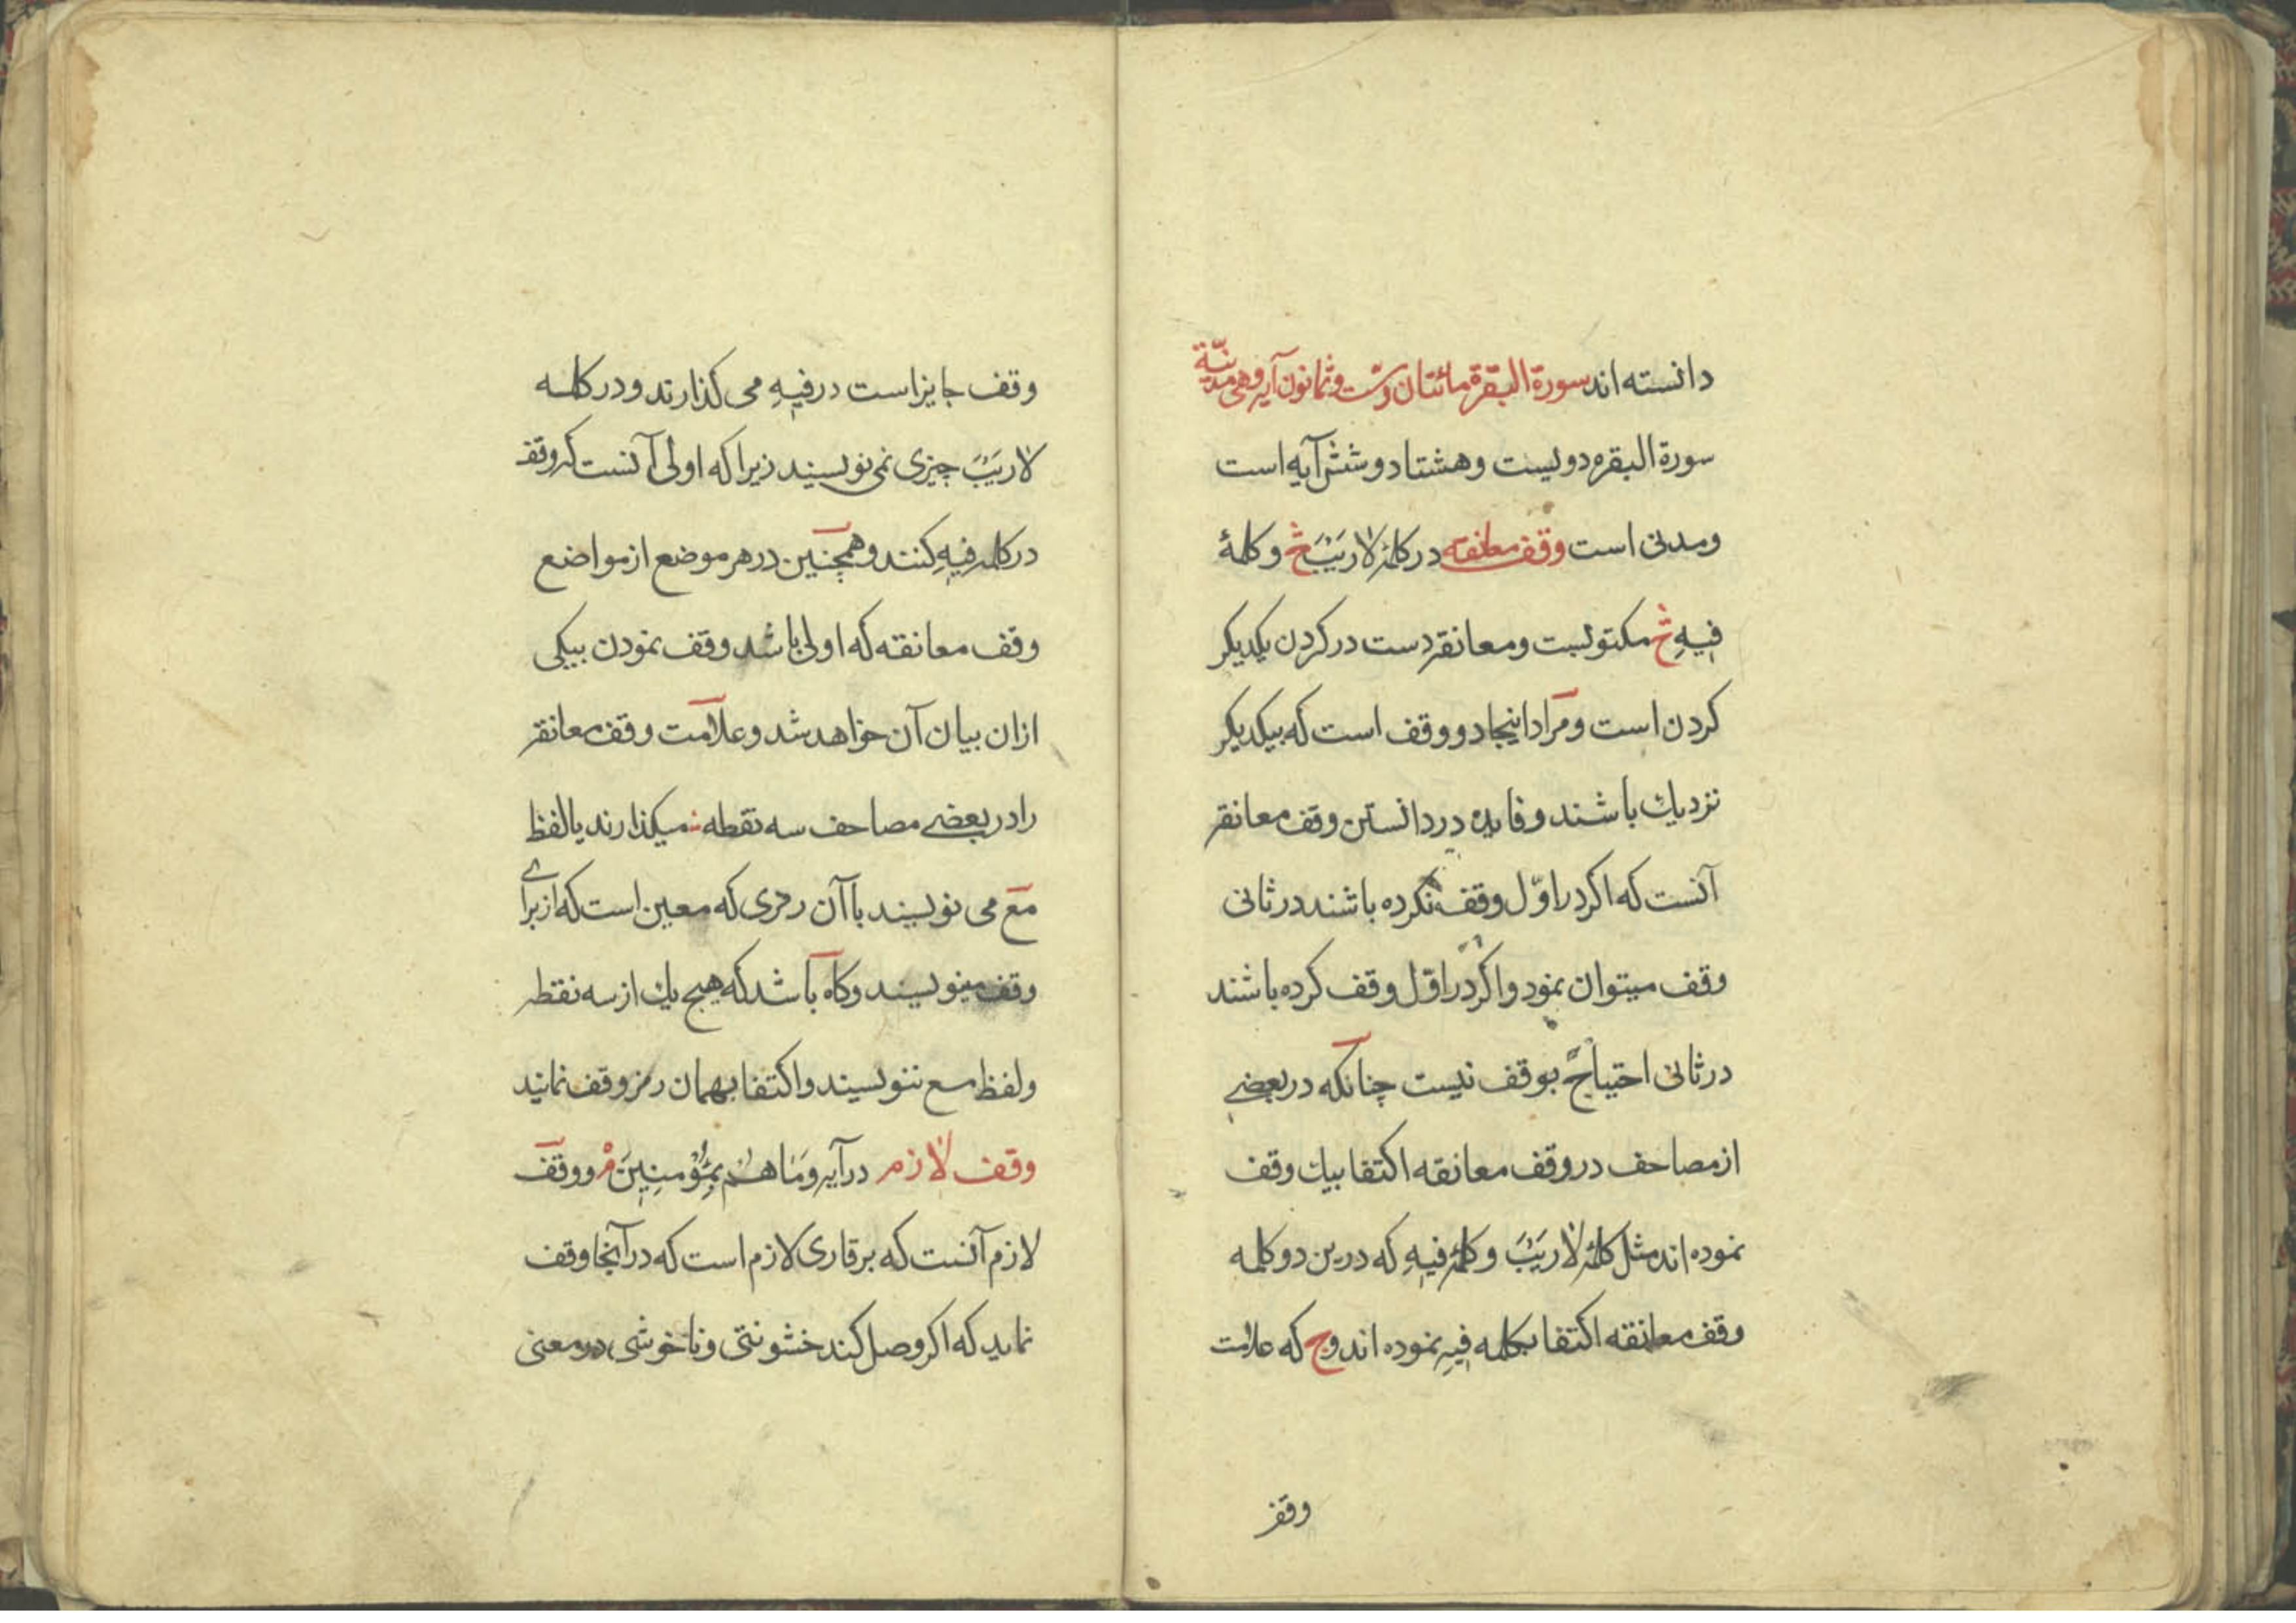 دانسته اند سورة البقرة مائتان وست وثمانون آیه وهی مدنیّة
سورة البقره دویست وهشتاد وشش آیه است
ومدنی است وقف معانقه در کلمۀ لَا رَیْبَ ج وکلمۀ
فِیهِ ج مکتوبست ومعانقه دست در کردن یکدیکر
کردن است ومراد اینجا دو وقف است که بیکدیکر
نزدیك باشند وفایده در دانستن وقف معانقه
آنست که اکر در اوّل وقف نکرده باشند در ثانی
وقف میتوان نمود واکر در اوّل وقف کرده باشند
در ثانی احتیاج بوقف نیست چنانکه در بعضے
از مصاحف در وقف معانقه اکتفا بیك وقف
نموده اند مثل کلمۀ لَا رَیْبَ وکلمۀ فِیهِ که درین دو کلمه
وقف معانقه اکتفا بکلمه فِیهِ نموده اند وج که علامت
وقف
وقف جایز است در فِیهِ می کذارند ودر کلمه
لَا رَیْبَ چیزی نمی نویسند زیرا که اولی آنست که وقف
در کلمه فِیهِ کنند وهمچنین در هر موضع از مواضع
وقف معانقه که اولی باشد وقف نمودن بیکی
ازان بیان آن خواهد شد وعلامت وقف معانقه
را در بعضے مصاحف سه نقطه ؞ میکذارند یا لفظ
مع می نویسند با آن رمزی که معین است که از براے
وقف مینویسند وکاه باشد که هیچ یك از سه نقطه
ولفظ مع ننویسند واکتفا بهمان رمز وقف نمایند
وقف لازم در آیه وَمَا هُمْ بِمُؤْمِنِینَ م ووقف
لازم آنست که بر قاری لازم است که در آنجا وقف
نماید که اکر وصل کند خشونتی وناخوشی در معنی